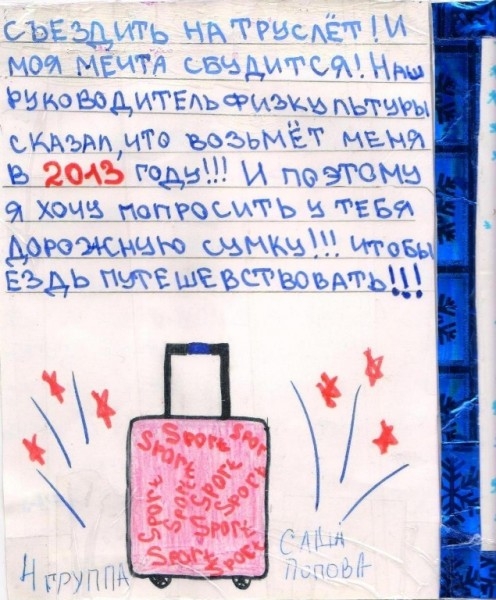 СЪЕЗДИТЬ НА ТРУСЛЁТ! И
МОЯ МЕЧТА СБУДИТСЯ! НАШ
РУКОВОДИТЕЛЬ ФИЗКУЛЬТУРЫ
СКАЗАЛ, ЧТО ВОЗЬМЁТ МЕНЯ
В 2013 ГОДУ!!! И ПОЭТОМУ
Я ХОЧУ ПОПРОСИТЬ У ТЕБЯ
ДОРОЖНУЮ СУМКУ!!! ЧТОБЫ
ЕЗДЬ ПУТЕШЕВСТВОВАТЬ!!!
Sport Sport Sport
Sport Sport
Sport Sport Sport
Sport Sport
Sport Sport
4 ГРУППА
САША
ПОПОВА